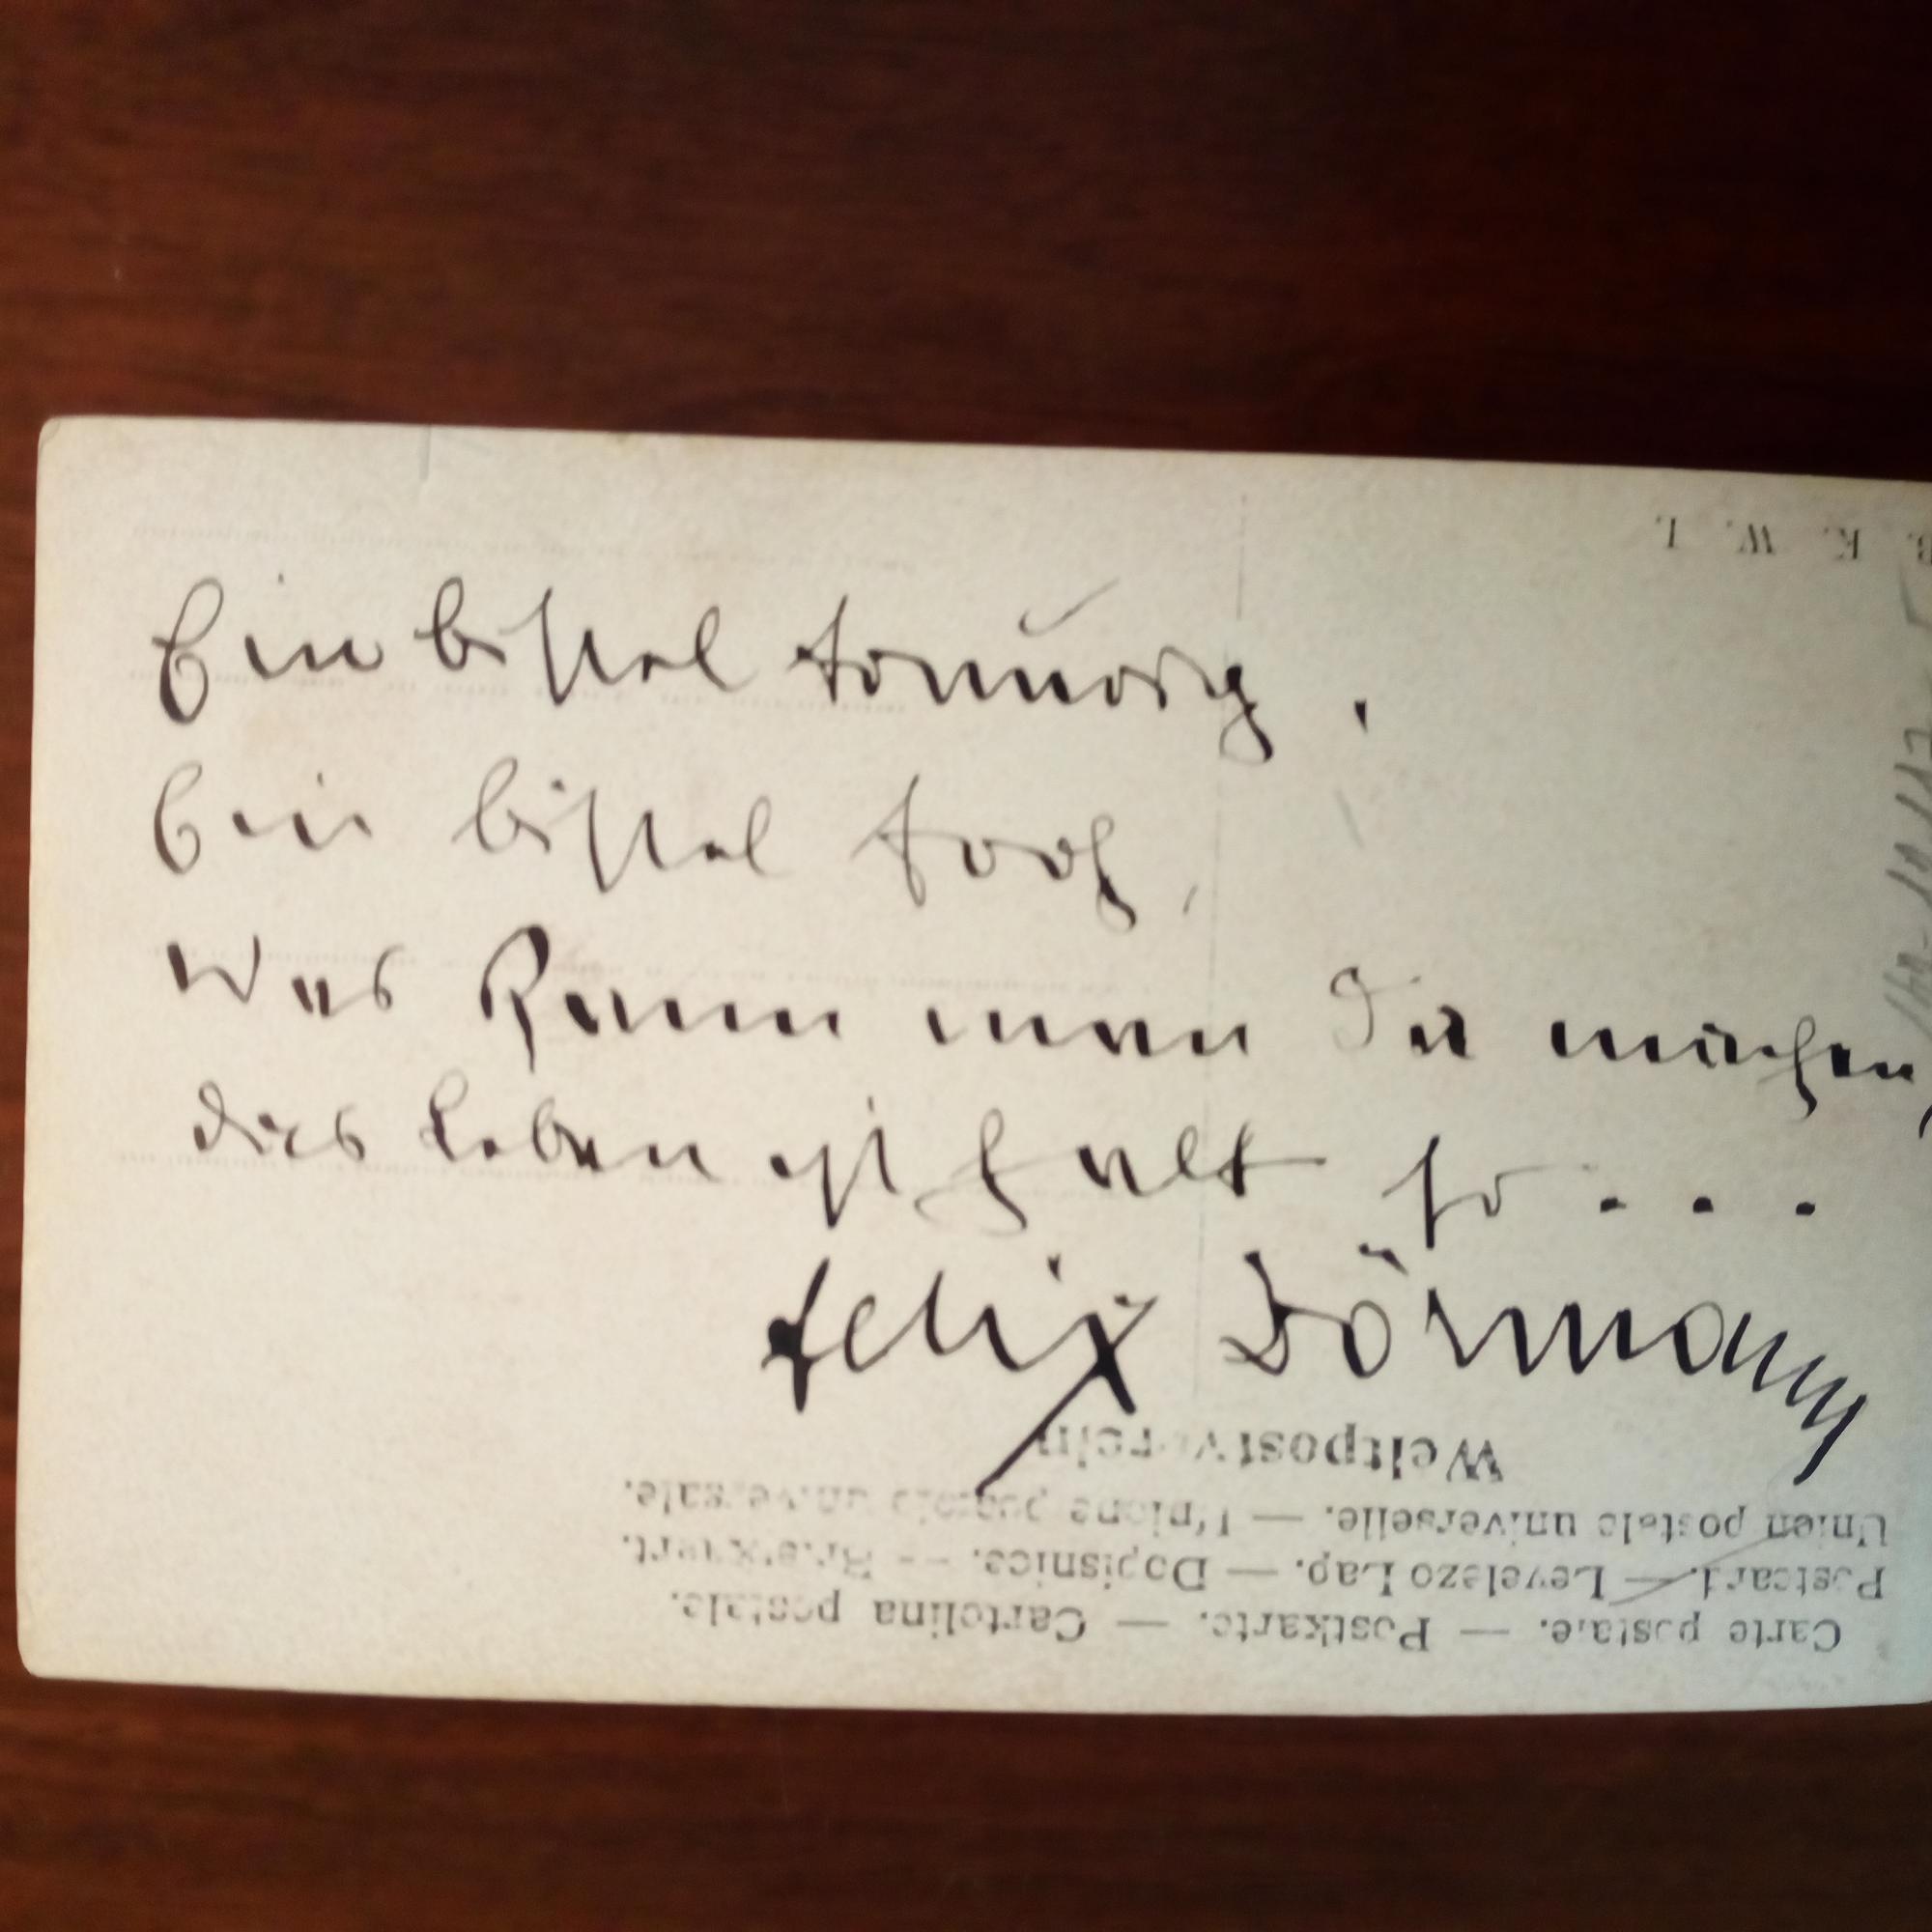 Ein bissel traurig,
Ein bissel froh,
Was kann man da machen,
das Leben ist halt so . . .
Felix Dörmann
Carte postale. — Postkarte. — Cartolina postale.
Postcard. — Levelezo Lap. — Dopisnice. —
Union postale universelle. — Unione postale universale.
Weltpostverein
B. K. W. I.